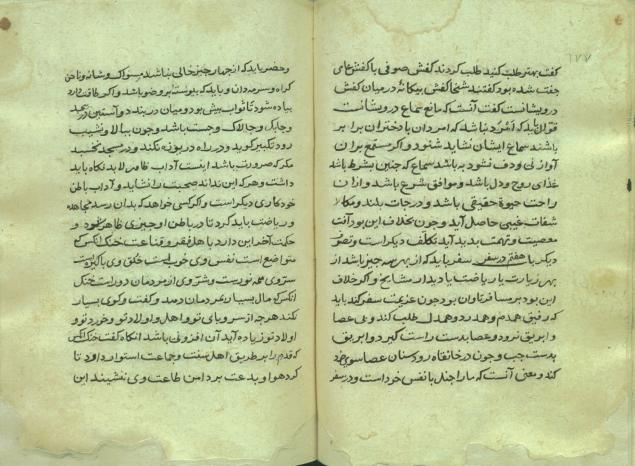 ۱۷۷
گفت بهتر طلب کنید طلب کردند کفش صوفی با کفش عامی
جفت شده بود گفتند شخا کفش بیکانه در میان کفش
درویشانست گفت آنست که مانع سماع درویشانست
قوّال باید که اَمرَد نباشد که امردان با دختران برابر
باشند سماع ایشان نشاید شنود و اکر مستمع بران
آواز نی و دف نشود به باشد سماع که چنین بشرط باشد
غذای روح و دل باشد و موافق شرع باشد و ازان
راحت حیوة حقیقی باشد و درجات بلند و مکا
شفات غیبی حاصل آید و چون بخلاف این بود آفت
معصیت و تهمت پدید آید تکلّف دیکر است و تصوّف
دیکر باب هفتم در سفر سفر باید که از بهر سه چیز باشد از
بهر زیارت یا ریاضت یا دیدار مشایخ و اکر خلاف
این بود بر مسافر تاوان بود چون عزیمت سفر کند باید
که رفیق همدم و همدرد و همدل طلب کند و بی عصا
و ابریق نرود و عصا بدست راست کیرد و ابریق
بدست چپ و چون در خانقاه رود سنان عصا سوی خود
کند و معنی آنست که ما را جنک با نفس خود است و در سفر
و حضر باید که از چهار چیز خالی نباشد مسواک و شانه و ناخن
کراه و سرمه دان و باید که پیوسته با وضو باشد و اکر طاقت دارد
پیاده شود تا ثواب بیش بود و میان در بندد و آستین در نبندد
و چابک و چالاک و چست باشد و چون ببالا و نشیب
رود تکبیر کوید و در راه دریوزه نکند و در مسجد نخسبد
مکر که ضرورت باشد اینست آداب ظاهر لابد نکاه باید
داشت و هر که این نداند صحبت را نشاید و آداب باطن
خود کاری دیکر است و اکر کسی خواهد که بدان رسد مجاهده
و ریاضت باید کرد تا در باطن او چیزی ظاهر شود و
حکمت آخر این دارد با اهل فقر و قناعت خنک آنکس که
متواضع است نفس وی خوب است خُلق وی پاکیزه است
سِرّ وی همه نورست و شرّ وی از مردمان دور است خنک
آنکس که مال بسیار بمردمان دهد و گفت و کوی بسیار
نکند هر چه از سر و پای تو و اهل و اولاد تو و خورد تو و
اولاد تو زیاده آید آن افزونی باشد آنکاه گفت خنک آنکس
که قدم را بر طریق اهل سنّت و جماعت استوار دارد تا
کرد هوا و بدعت بر دامن طاعت وی ننشیند این